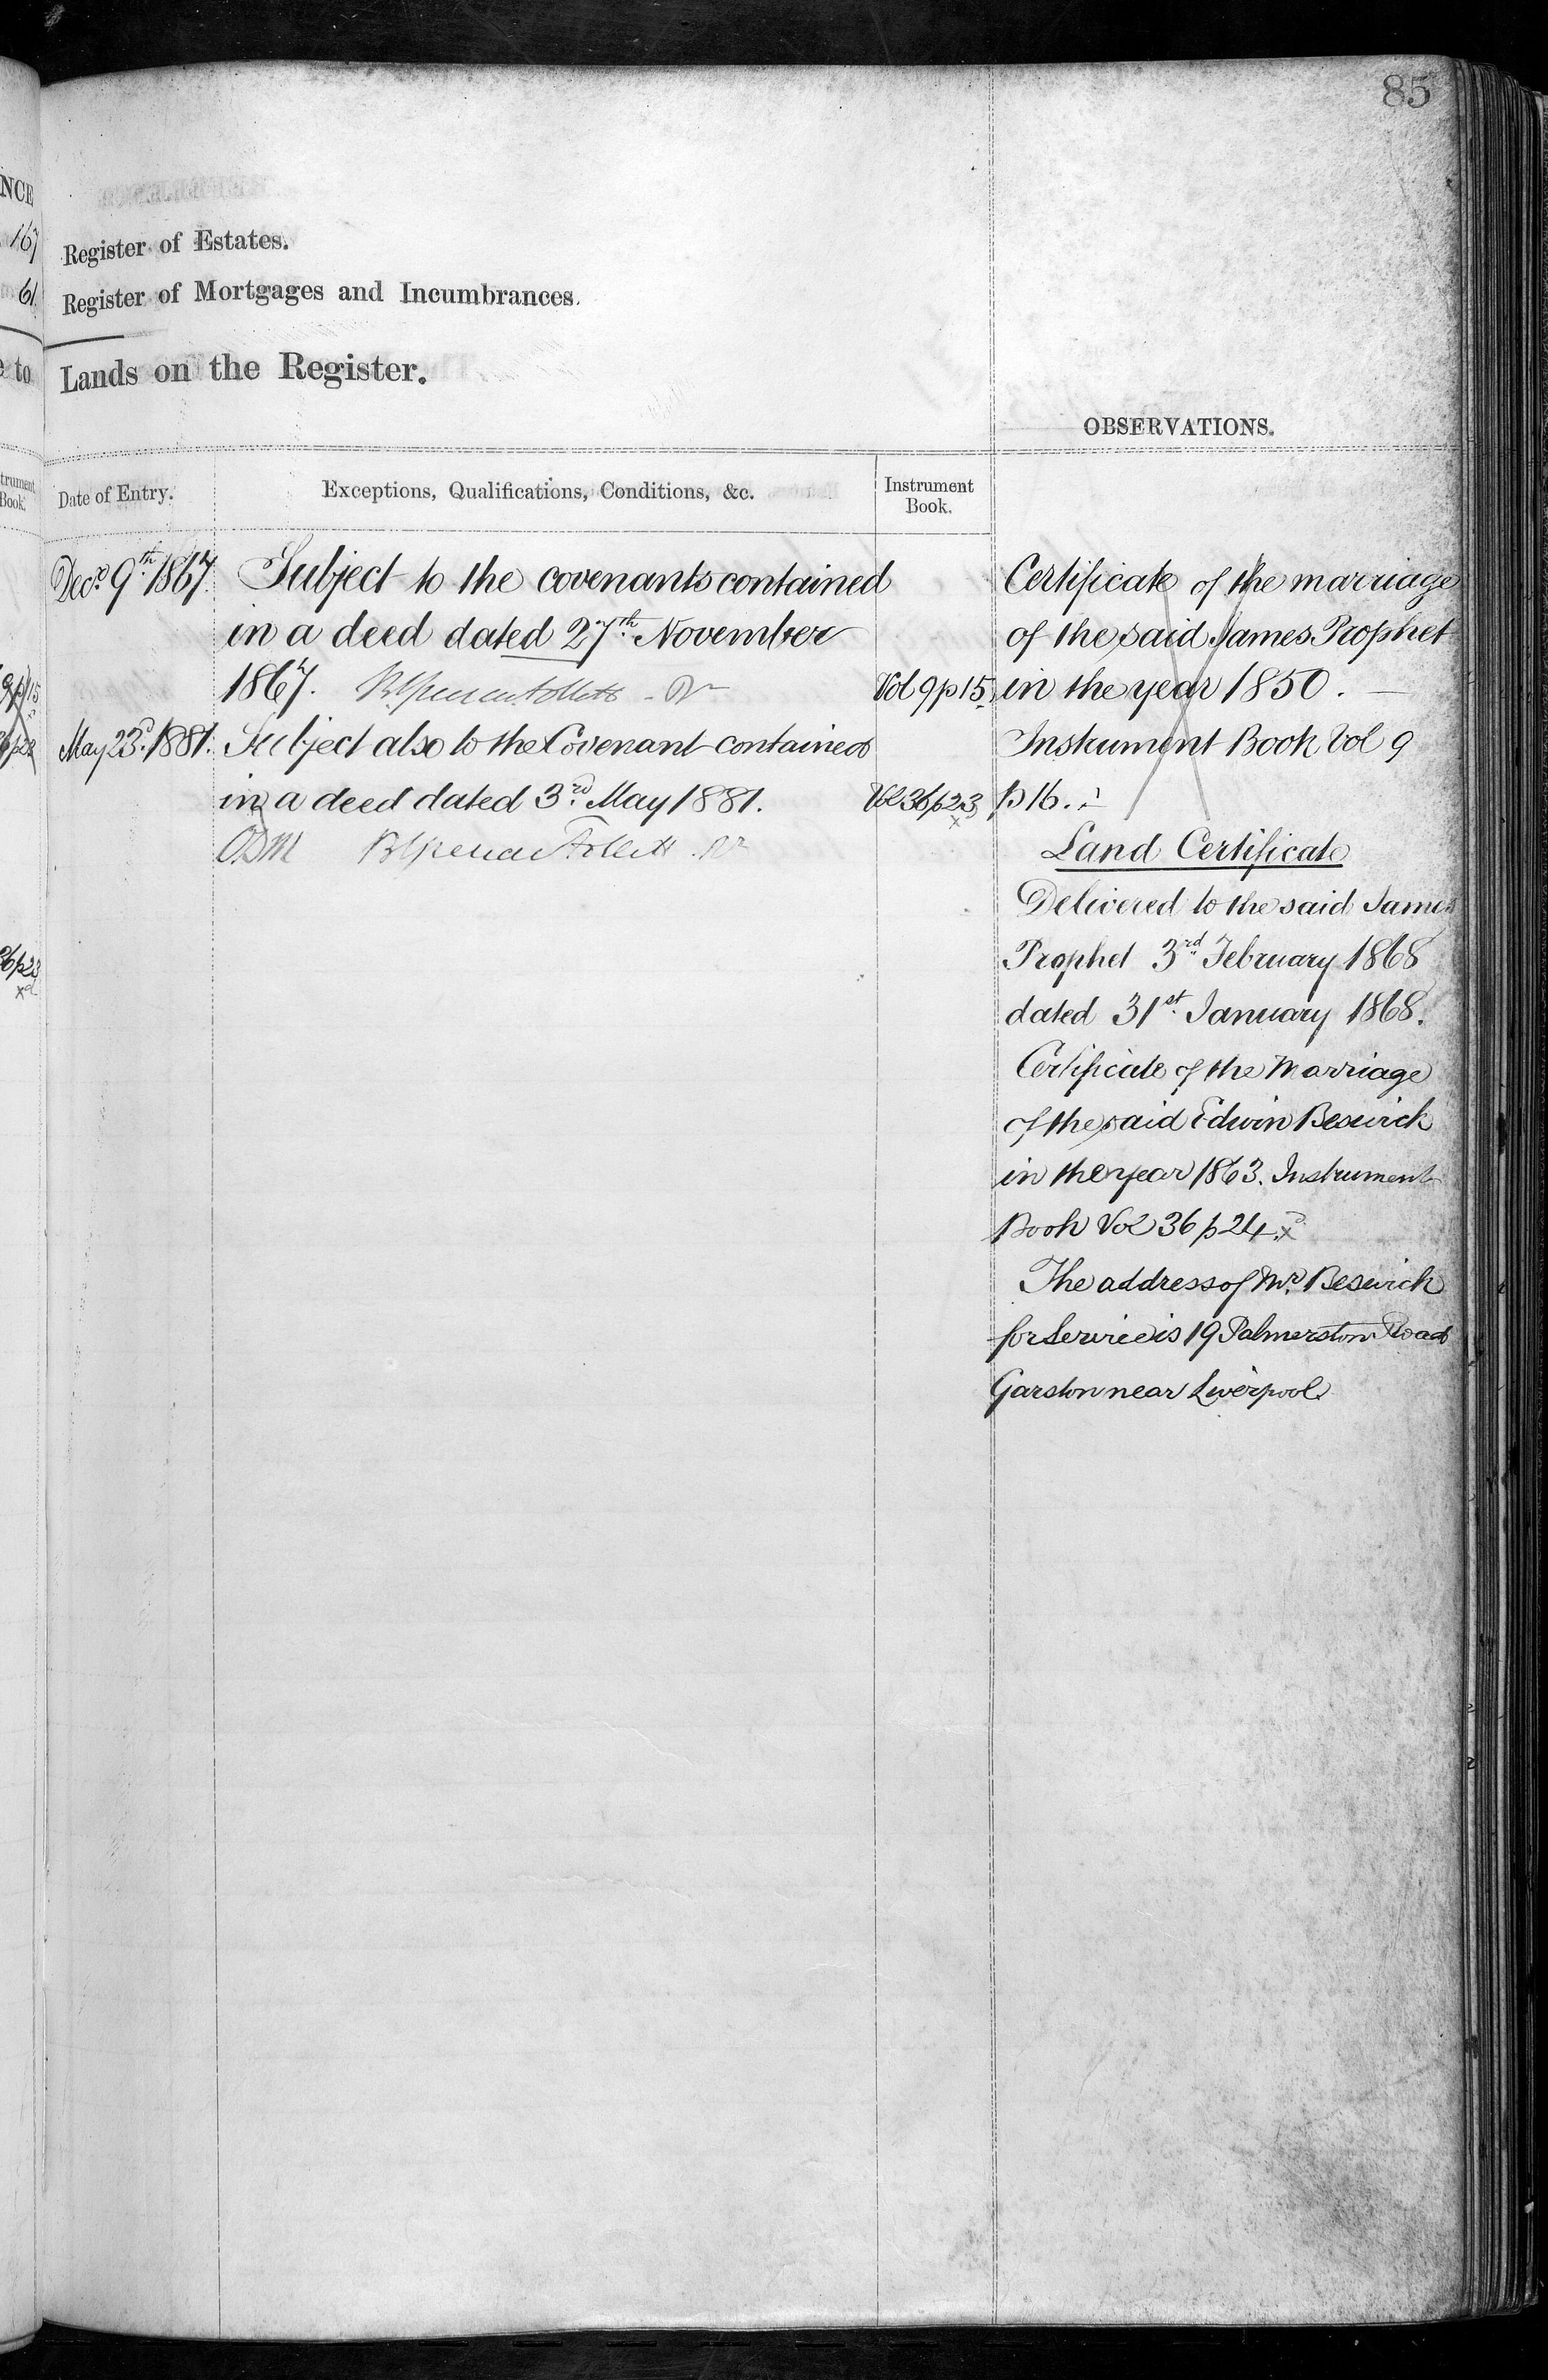 85
NCE
167
61
e to
Register of Estates.
Register of Mortgages and Incumbrances.
Lands on the Register.
OBSERVATIONS.
trument
Book.
Date of Entry.
Exceptions, Qualifications, Conditions, &c.
Instrument
Book.
Decr 9th 1867. Subject to the covenants contained
in a deed dated 27th November
1867.
Vol 9 p 15
May 23d. 1881. Subject also to the Covenant contained
in a deed dated 3rd May 1881.
Vol 36 p 23
Certificate of the marriage
of the said James Prophet
in the year 1850.
Instrument Book Vol 9
p 16.
Land Certificate
Delivered to the said James
Prophet 3rd February 1868
dated 31st January 1868.
Certificate of the Marriage
of the said Edwin Beswick
in the year 1863. Instrument
Book Vol 36 p 24
The address of Mr Beswick
for Service is 19 Palmerston Road
Garston near Liverpool